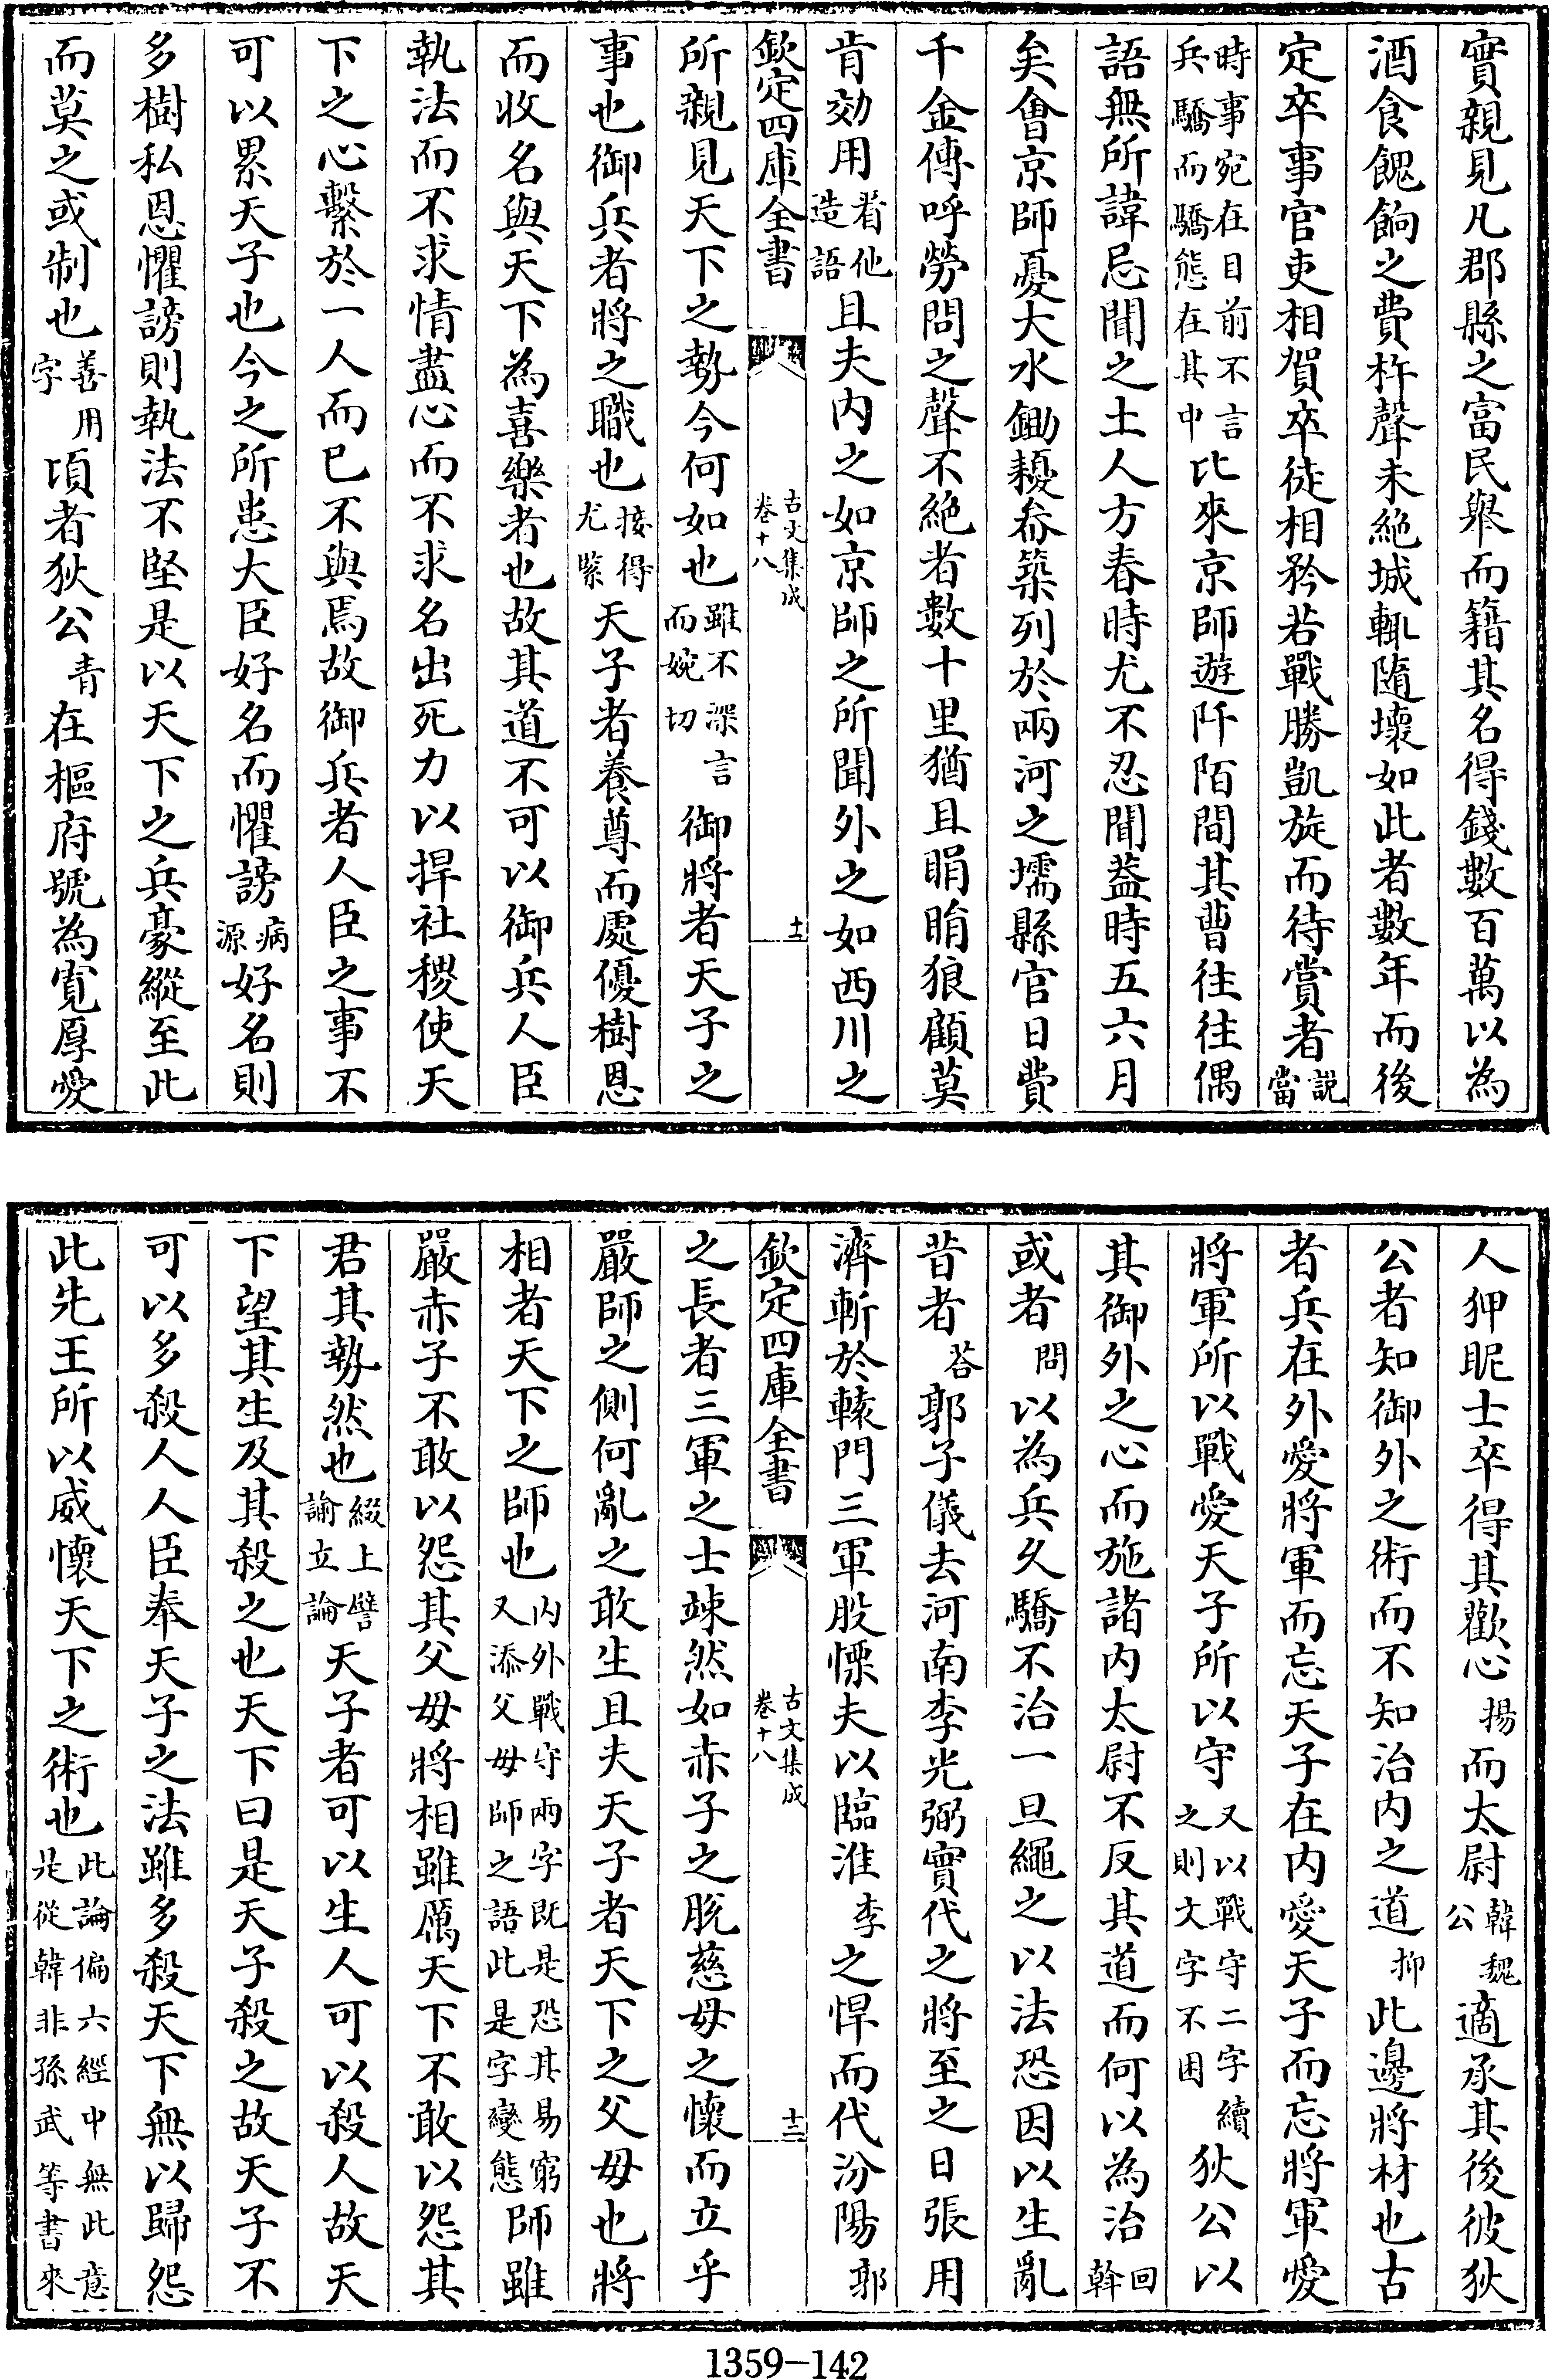 實親見凡郡縣之富民舉而籍其名得錢數百萬以為
酒食餽餉之費杵聲未絶城輒隨壞如此者數年而後
定卒事官吏相賀卒徒相矜若戰勝凱旋而待賞者說當
時事宛在目前不言兵驕而驕態在其中比來京師遊阡陌間其曹往往偶
語無所諱忌聞之土人方春時尤不忍聞葢時五六月
矣會京師憂大水鋤耰畚築列於兩河之壖縣官日費
千金傳呼勞問之聲不絶者數十里猶且睊睊狼顧莫
肯効用看他造語且夫内之如京師之所聞外之如西川之
欽定四庫全書
古文集成
卷十八
十一
所親見天下之勢今何如也雖不深言而婉切御將者天子之
事也御兵者將之職也接得尤緊天子者養尊而處優樹恩
而收名與天下為喜樂者也故其道不可以御兵人臣
執法而不求情盡心而不求名出死力以捍社稷使天
下之心繫於一人而已不與焉故御兵者人臣之事不
可以累天子也今之所患大臣好名而懼謗病源好名則
多樹私恩懼謗則執法不堅是以天下之兵豪縱至此
而莫之或制也善用字頃者狄公青在樞府號為寛厚愛
人狎昵士卒得其歡心揚而太尉韓魏公適承其後彼狄
公者知御外之術而不知治内之道抑此邊將材也古
者兵在外愛將軍而忘天子在内愛天子而忘將軍愛
將軍所以戰愛天子所以守又以戰守二字續之則文字不困狄公以
其御外之心而施諸内太尉不反其道而何以為治回斡
或者問以為兵久驕不治一旦繩之以法恐因以生亂
昔者荅郭子儀去河南李光弼實代之將至之日張用
濟斬於轅門三軍股慄夫以臨淮李之悍而代汾陽郭
欽定四庫全書
古文集成
卷十八
十二
之長者三軍之士竦然如赤子之脫慈母之懷而立乎
嚴師之側何亂之敢生且夫天子者天下之父母也將
相者天下之師也内外戰守兩字既是恐其易窮又添父母師之語此是字變態師雖
嚴赤子不敢以怨其父母將相雖厲天下不敢以怨其
君其勢然也綴上譬諭立論天子者可以生人可以殺人故天
下望其生及其殺之也天下曰是天子殺之故天子不
可以多殺人人臣奉天子之法雖多殺天下無以歸怨
此先王所以威懷天下之術也此論偏六經中無此意是從韓非孫武等書來
1359—142